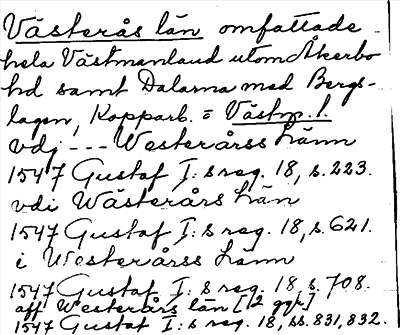 Västerås län omfattade
hela Västmanland utom Åkerbo
hd samt Dalarna med Bergs-
lagen, Kopparb. = Västm. l.
vdj --- Westerårss Länn
1547 Gustaf I:s reg. 18, s. 223.
vdi Wästerårs Län
1547 Gustaf I:s reg. 18, s. 621.
i Westerårss Länn
1547 Gustaf I:s reg. 18, s. 708.
aff Westerårs län [2 ggr]
1547 Gustaf I:s reg. 18, ss. 831, 832.